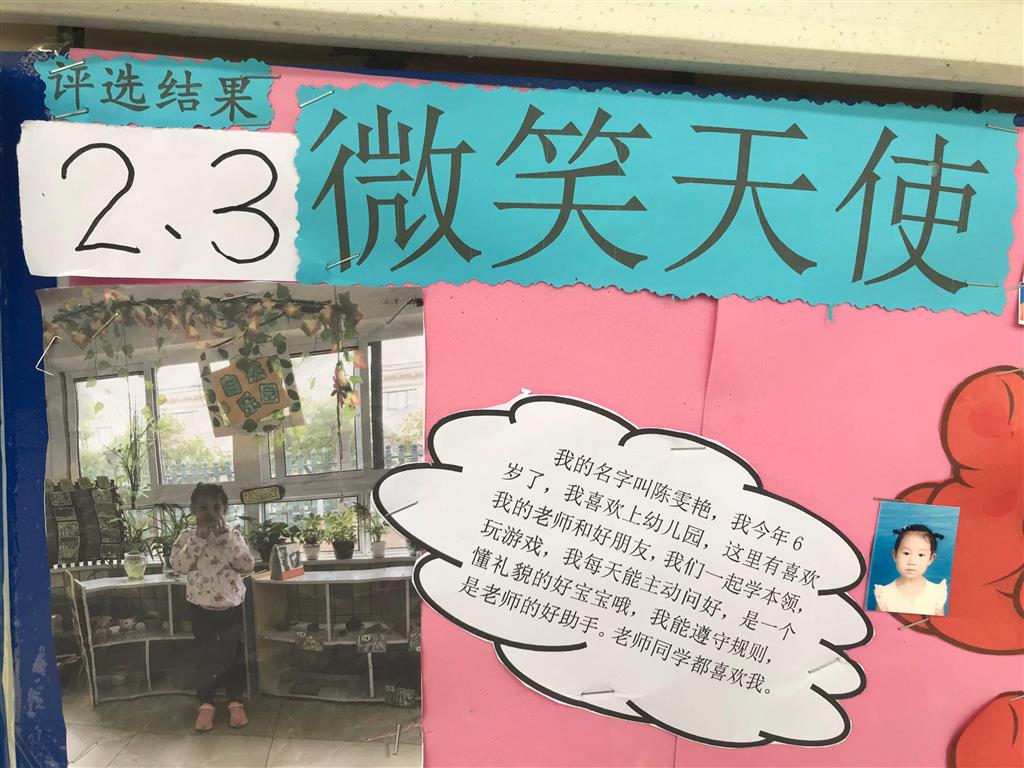 评选结果
2、3
微笑天使
自然
乐园
我的名字叫陈雯艳，我今年6
岁了，我喜欢上幼儿园，这里有喜欢
我的老师和好朋友，我们一起学本领，
玩游戏，我每天能主动问好，是一个
懂礼貌的好宝宝哦，我能遵守规则，
是老师的好助手。老师同学都喜欢我。